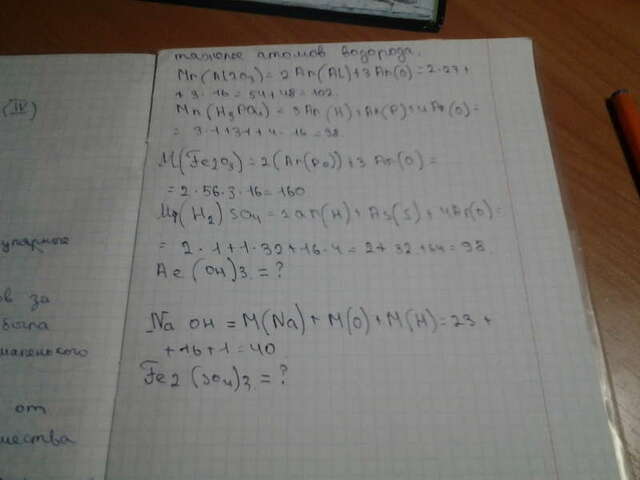 (IV)
тяжелее атомов водорода.
Mr(Al2O3) = 2Ar(Al)+3Ar(O)=2·27+
+3·16=54+48=102.
Mr(H3PO4) = 3Ar(H)+Ar(P)+4Ar(O)=
= 3·1+31+4·16=98
M(Fe2O3)=2(Ar(Fe))+3Ar(O)=
=2·56·3·16=160
Mr(H2)SO4=2ar(H)+As(S)+4Ar(O)=
= 2·1+1·32+16·4=2+32+64=98.
Ae(OH)3=?
Na OH = M(Na)+M(O)+M(H)=23+
+16+1=40
Fe2(SO4)3=?
за
от